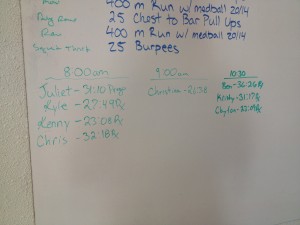 Row 400 m Run w/ medball 20/14
25 Chest to Bar Pull Ups
Row 400 m Run w/ medball 20/14
Squat Thrust 25 Burpees
8:00am
Juliet - 31:10
Kyle - 27:49 Rx
Kenny - 23:08 Rx
Chris - 32:18 Rx
9:00am
Christian - 26:38
10:30
Ben - 36:26 Rx
Kristy - 31:17 Rx
Clayton - 32:09 Rx